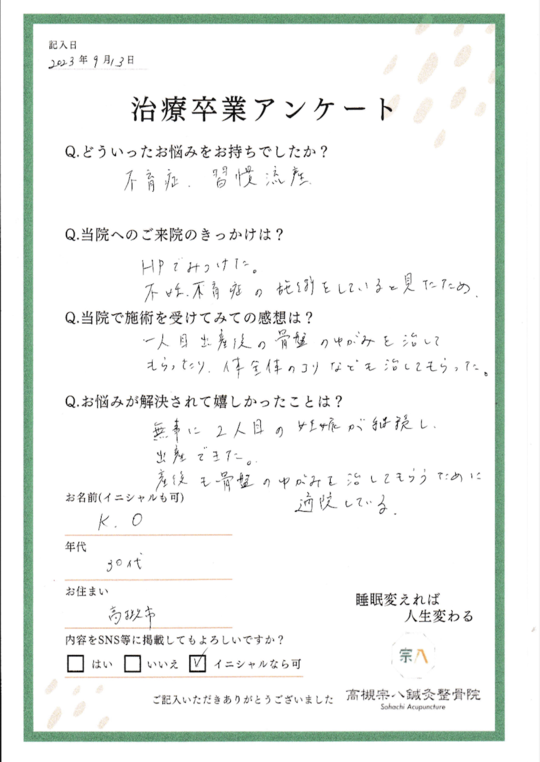 記入日
2023年9月13日
治療卒業アンケート
Q.どういったお悩みをお持ちでしたか？
不育症、習慣流産
Q.当院へのご来院のきっかけは？
HPでみつけた。
不妊、不育症の施術をしていると見たため、
Q.当院で施術を受けてみての感想は？
一人目出産後の骨盤のゆがみを治して
もらったり、体全体のコリなども治してもらった。
Q.お悩みが解決されて嬉しかったことは？
無事に2人目の妊娠が継続し、
出産できた。
産後も骨盤のゆがみを治してもらうために
通院している。
お名前(イニシャルも可)
K.O
年代
30代
お住まい
高槻市
睡眠変えれば
人生変わる
内容をSNS等に掲載してもよろしいですか？
はい いいえ イニシャルなら可
宗八
ご記入いただきありがとうございました
高槻宗八鍼灸整骨院
Sohachi Acupuncture